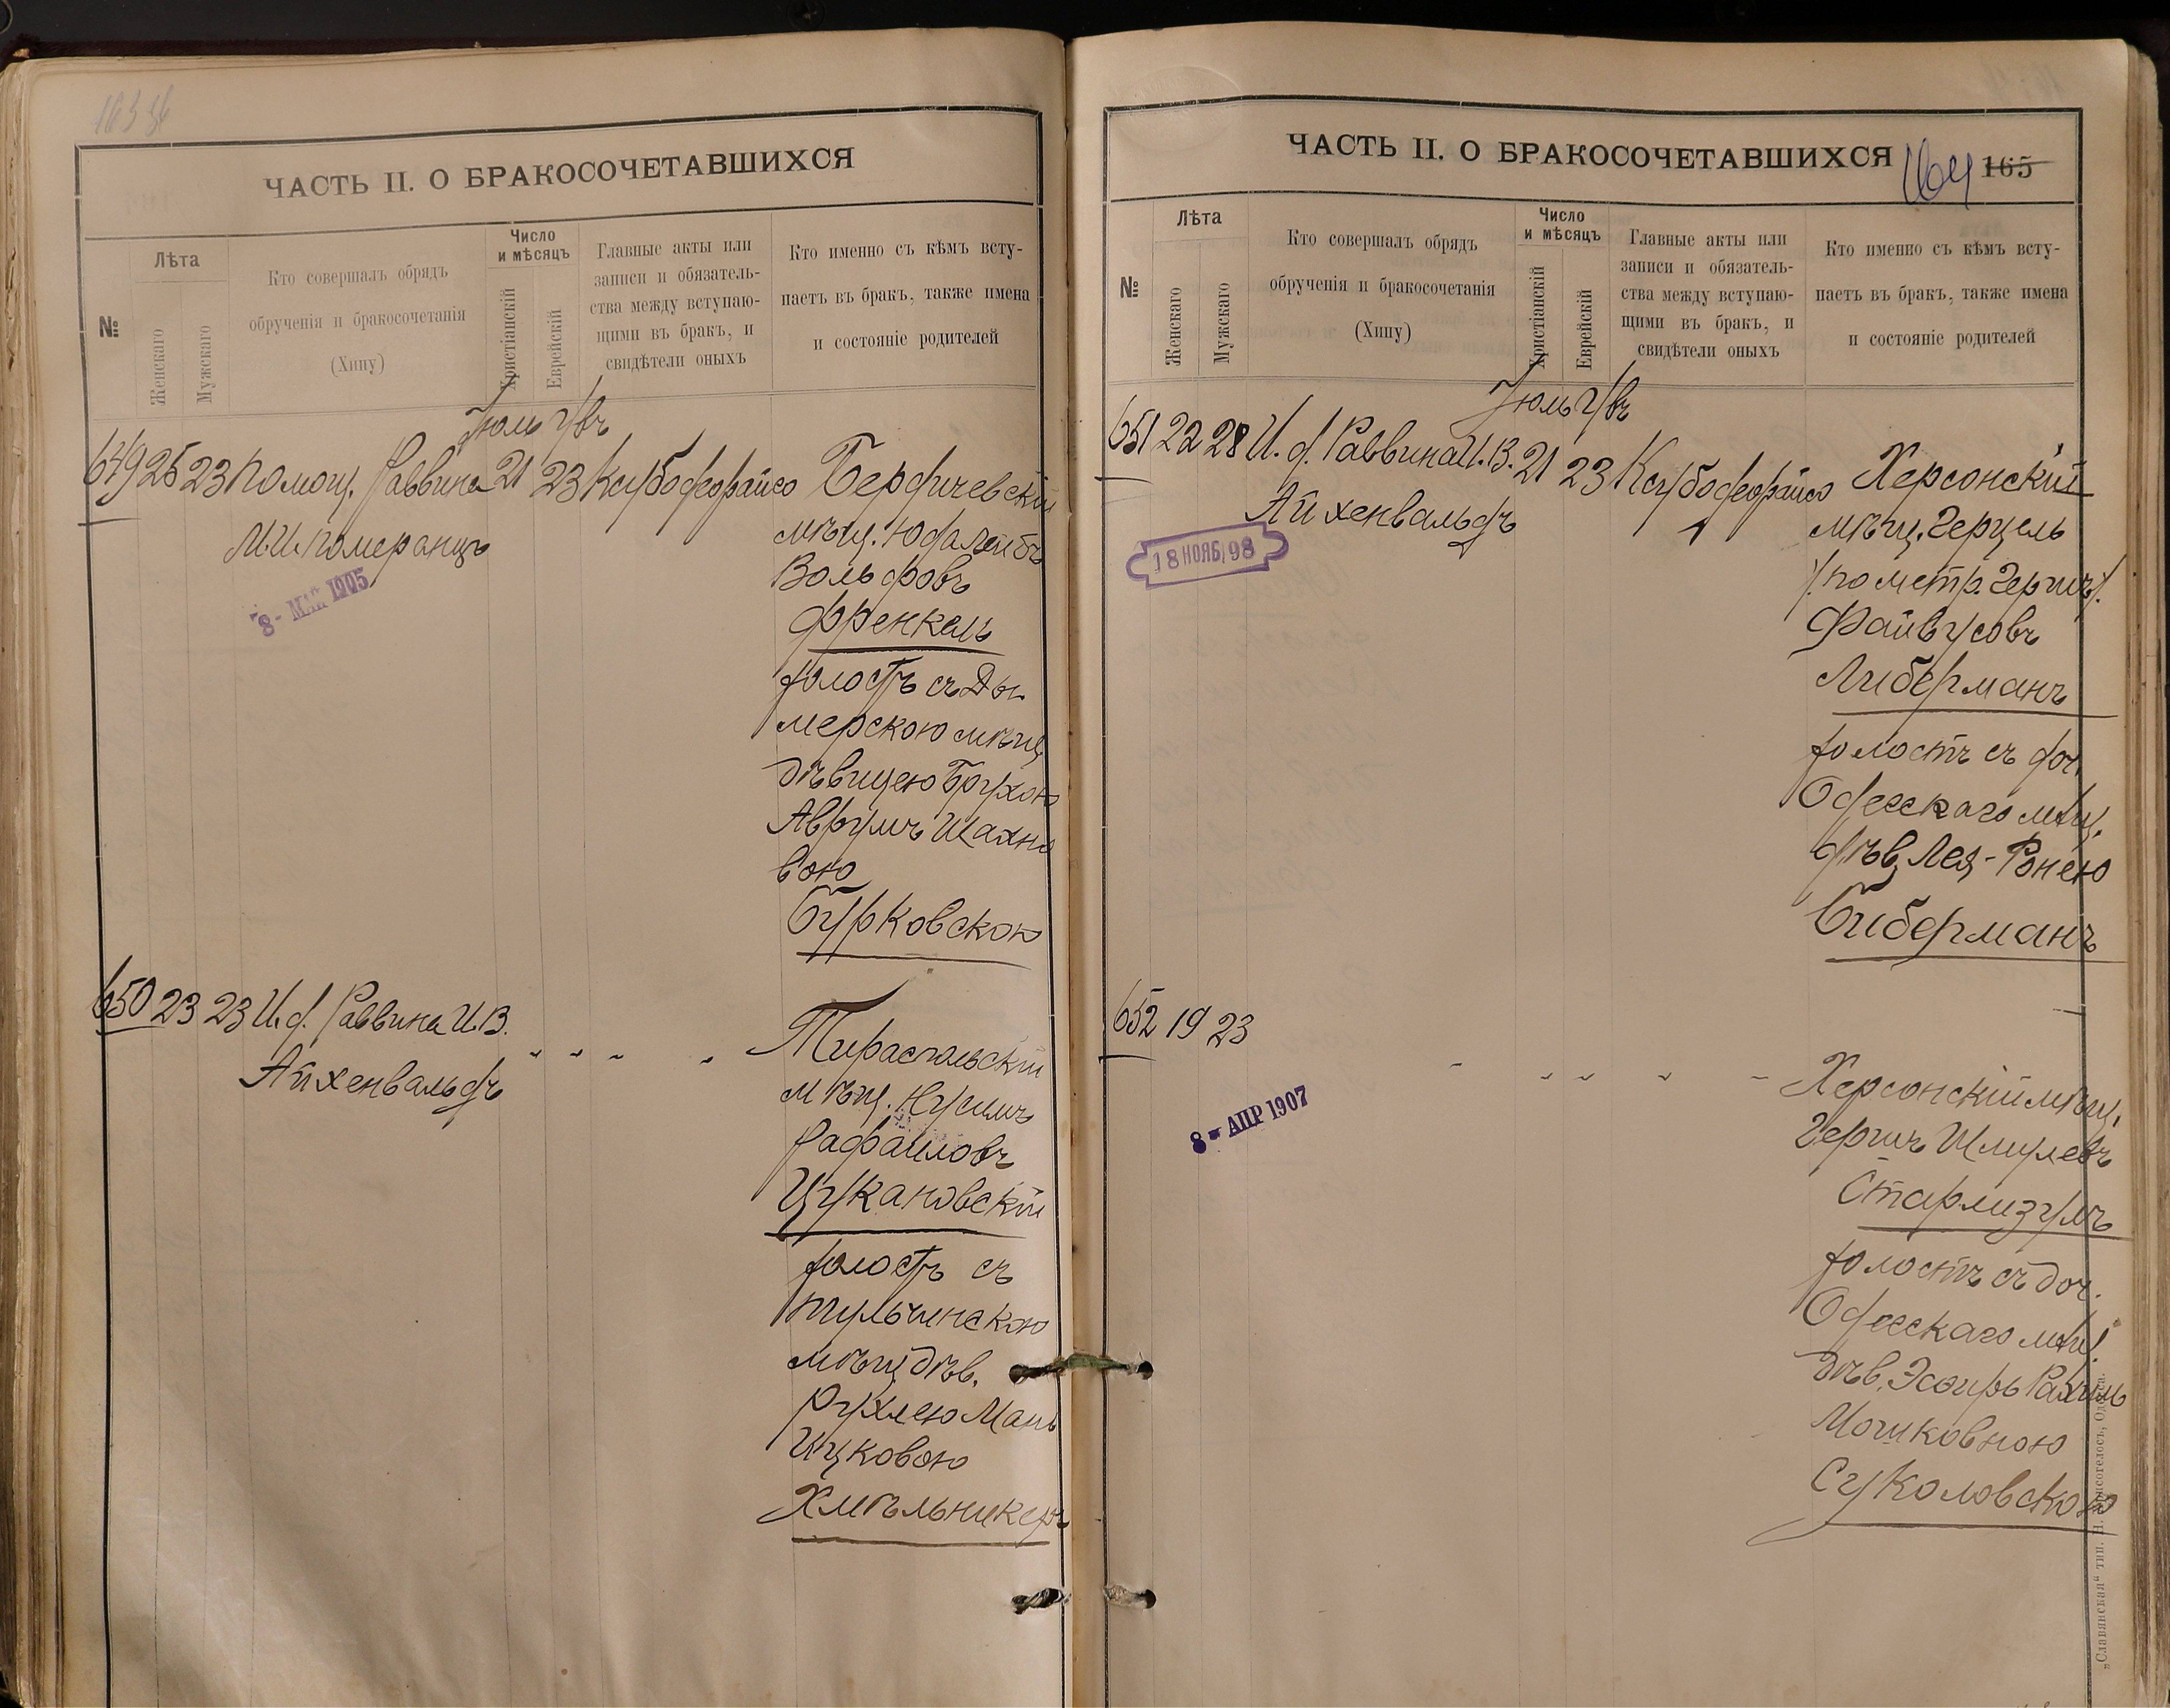 ЧАСТЬ II. О БРАКОСОЧЕТАВШИХСЯ
№
Лѣта
Женскаго
Мужскаго
Кто совершалъ обрядъ
обрученія и бракосочетанія
(Хипу)
Число
и мѣсяцъ
Христіанскій
Еврейскій
Главные акты или
записи и обязатель-
ства между вступаю-
щими въ бракъ, и
свидѣтели оныхъ
Кто именно съ кѣмъ всту-
паетъ въ бракъ, также имена
и состояніе родителей
Іюль
649 25 23 Помощ. Раввина 21 23
М.И. Померанцъ
8 - МАЙ 1905
Бердичевскій
мѣщ.
Вольфовъ
Френкель
холостъ съ Ды
мерскою мѣщ
дѣвицею Брухою
Аврумъ Шахно
вою
Бурковскою
650 23 23 И. д. Раввина И.В.
Айхенвальдъ
" " " "
Тираспольскій
мѣщ. Нусимъ
Рафаиловъ
Цукановскій
холостъ съ
тульчинскою
мѣщ дѣв.
Рухлею Мань
Ицковою
Хмѣльникеръ
ЧАСТЬ II. О БРАКОСОЧЕТАВШИХСЯ
164 165
№
Лѣта
Женскаго
Мужскаго
Кто совершалъ обрядъ
обрученія и бракосочетанія
(Хипу)
Число
и мѣсяцъ
Христіанскій
Еврейскій
Главные акты или
записи и обязатель-
ства между вступаю-
щими въ бракъ, и
свидѣтели оныхъ
Кто именно съ кѣмъ всту-
паетъ въ бракъ, также имена
и состояніе родителей
Іюль
651 22 28 И. д. Раввина И.В. 21 23
Айхенвальдъ
18 НОЯБ 98
Херсонскій
мѣщ. Герцель
/по метр. Гершъ/.
Файвусовъ
Либерманъ
холостъ съ доч.
Одесскаго мѣщ.
дѣв. Лея-Ронею
Биберманъ
652 19 23
" " " "
8 - АПР 1907
Херсонскій мѣщ.
Гершъ Шмулевъ
Стармизумъ
холостъ съ доч.
Одесскаго мѣщ.
дѣв. Эсѳирь Рахиль
Мошковною
Суколовскою
„Славянская“ тип. Н. Хрисогелосъ, Одесса.